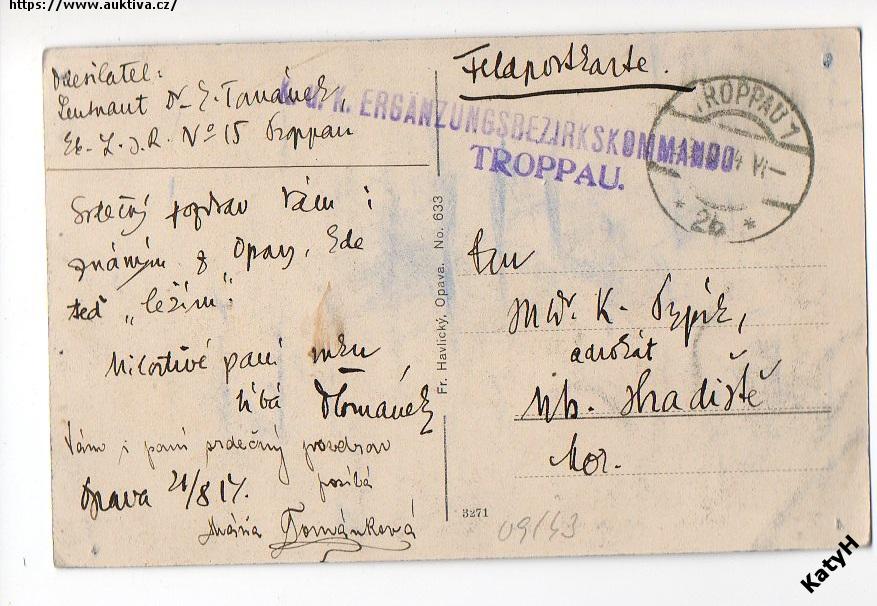 https://www.auktiva.cz/
Odesílatel:
Leutnant Dr
No 15 Troppau
Srdečný pozdrav Vám i
známým z Opavy, kde
teď „ležím“.
Milostivé paní ruku
líbá
Vám i paní srdečný pozdrav
posílá
Opava 21/8 17.
Mánia Tománková
Fr. Havlický, Opava. No. 633
Feldpostkarte.
K. u. K. ERGÄNZUNGSBEZIRKSKOMMANDO
TROPPAU.
TROPPAU 1
VI
* 2b *
Pan
K.
advokát
Uh. Hradiště
Mor.
3271
09/43
KatyH